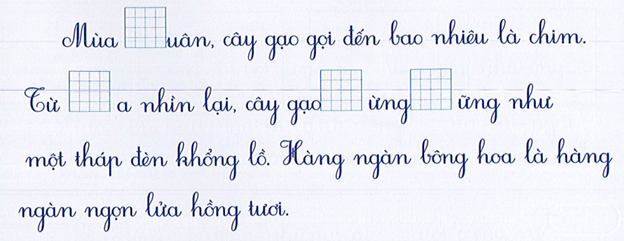 Mùa uân, cây gạo gọi đến bao nhiêu là chim.
Từ a nhìn lại, cây gạo ừng ững như
một tháp đèn khổng lồ. Hàng ngàn bông hoa là hàng
ngàn ngọn lửa hồng tươi.